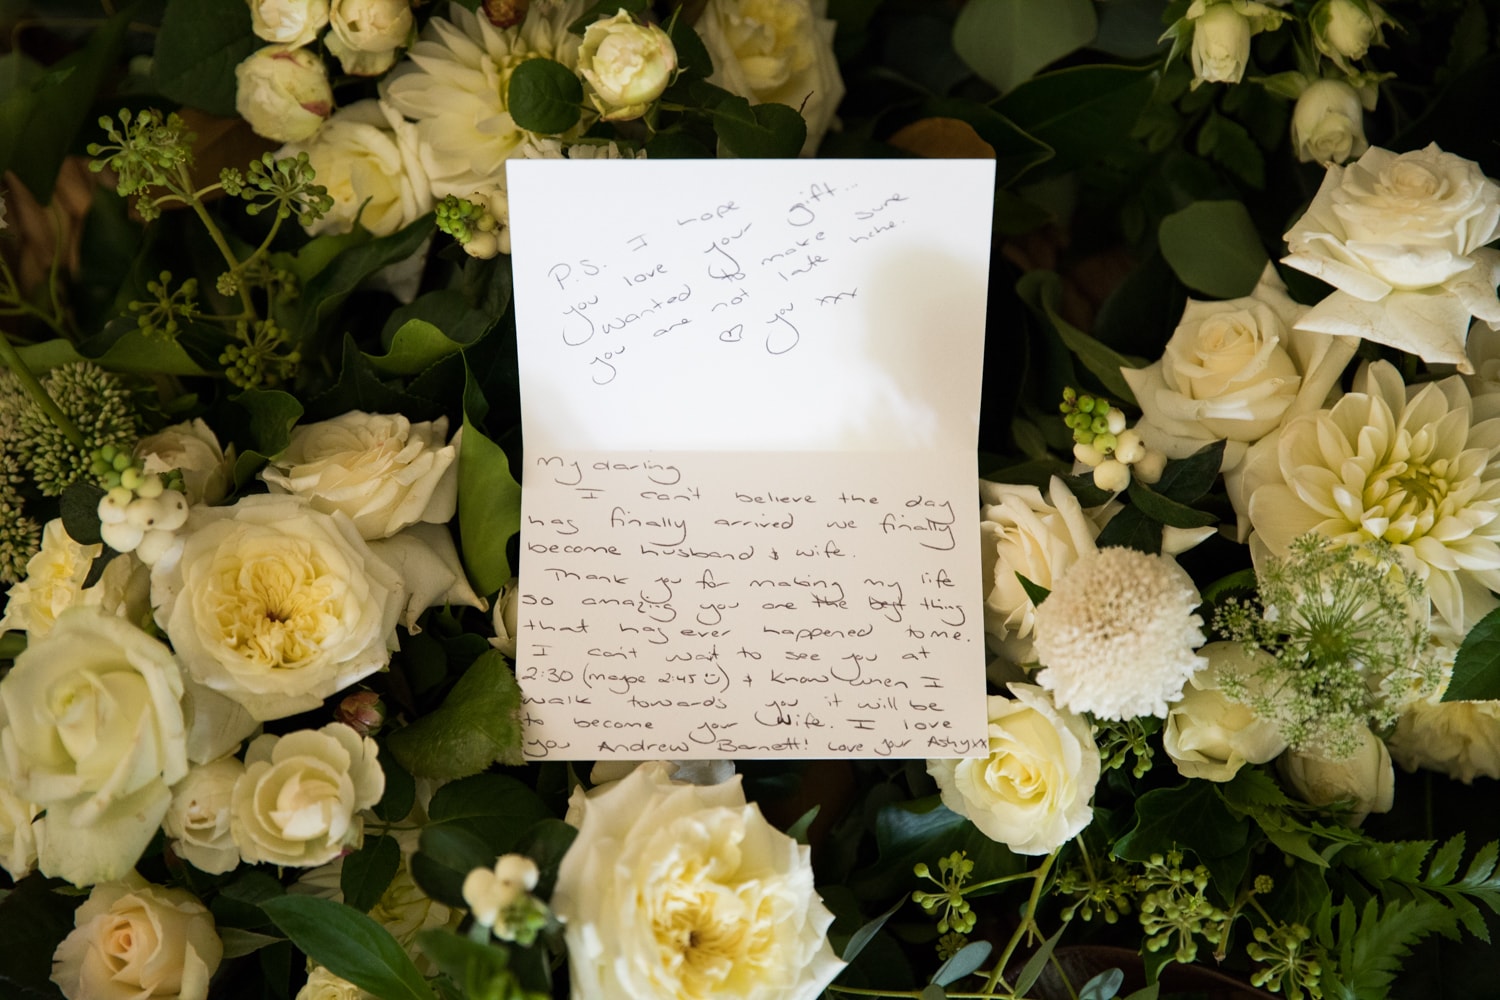 P.S. I hope
you love your gift...
Wanted to make sure
you are not late hehe.
♡ you xxx
My darling
I can't believe the day
has finally arrived we finally
become husband & wife.
Thank you for making my life
so amazing you are the best thing
that has ever happened to me.
I can't wait to see you at
2:30 (maybe 2:45 ☺) & know when I
walk towards you it will be
to become your wife. I love
you Andrew Barnett! Love your Ashyxx